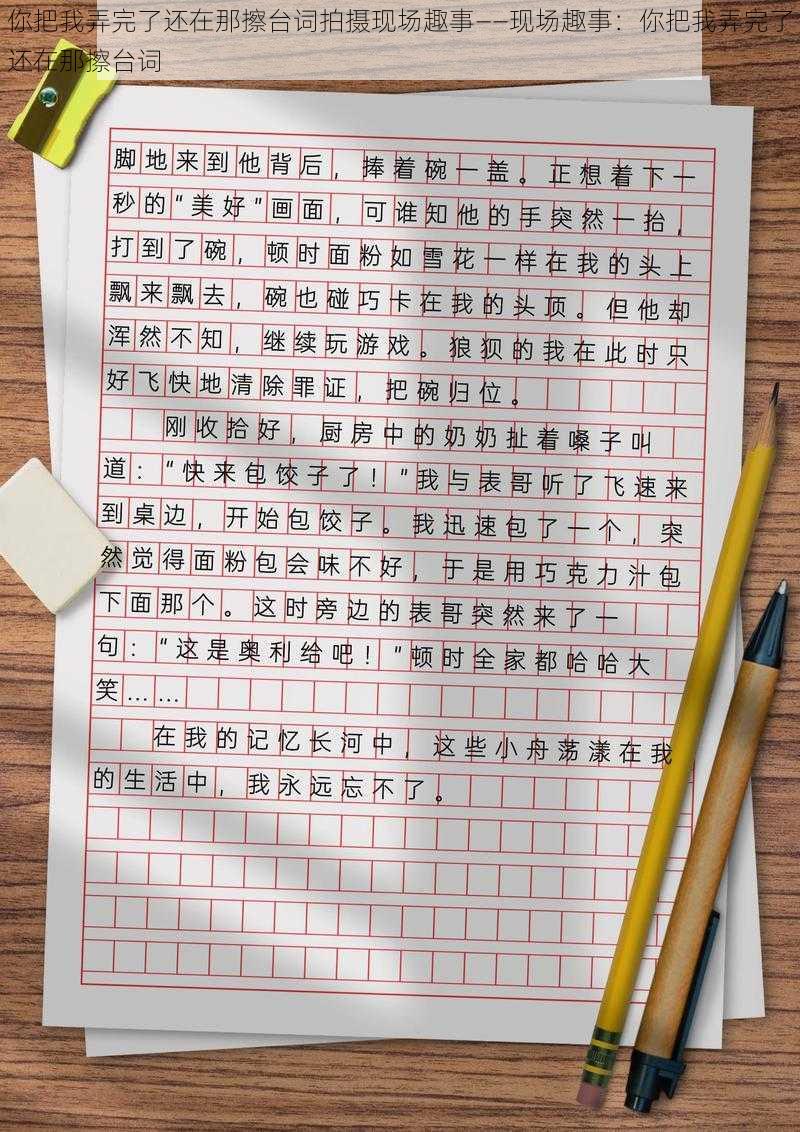 你把我弄完了还在那擦台词拍摄现场趣事——现场趣事：你把我弄完了
还在那擦台词
脚地来到他背后，捧着碗一盖。正想着下一
秒的“美好”画面，可谁知他的手突然一抬，
打到了碗，顿时面粉如雪花一样在我的头上
飘来飘去，碗也碰巧卡在我的头顶。但他却
浑然不知，继续玩游戏。狼狈的我在此时只
好飞快地清除罪证，把碗归位。
刚收拾好，厨房中的奶奶扯着嗓子叫
道：“快来包饺子了！”我与表哥听了飞速来
到桌边，开始包饺子。我迅速包了一个，突
然觉得面粉包会味不好，于是用巧克力汁包
下面那个。这时旁边的表哥突然来了一
句：“这是奥利给吧！”顿时全家都哈哈大
笑……
在我的记忆长河中，这些小舟荡漾在我
的生活中，我永远忘不了。